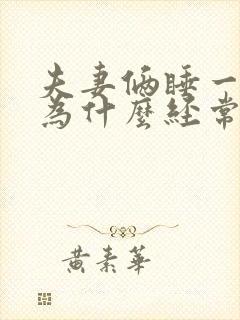 夫妻俩睡一
為什麼經常
黃素華